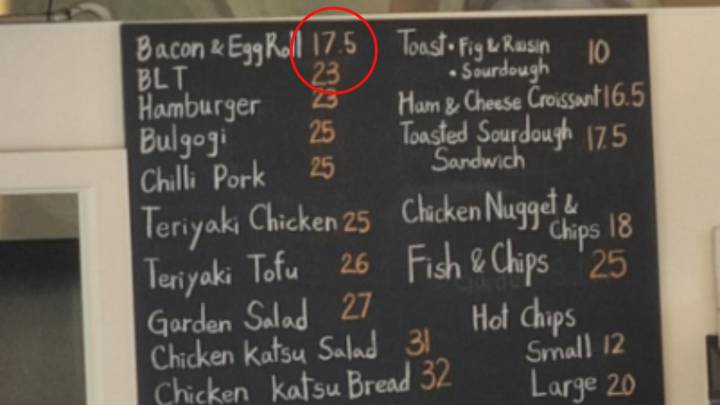 Bacon & Egg Roll 17.5
BLT 23
Hamburger 23
Bulgogi 25
Chilli Pork 25
Teriyaki Chicken 25
Teriyaki Tofu 26
Garden Salad 27
Chicken Katsu Salad 31
Chicken Katsu Bread 32
Toast • Fig & Raisin 10
• Sourdough
Ham & Cheese Croissant 16.5
Toasted Sourdough 17.5
Sandwich
Chicken Nugget &
Chips 18
Fish & Chips 25
Hot Chips
Small 12
Large 20